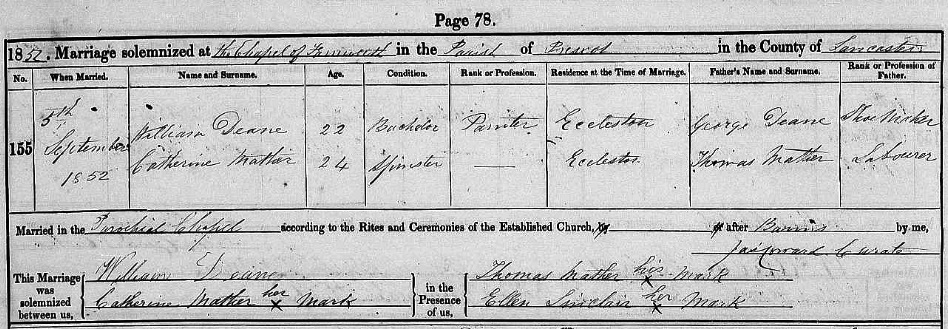 Page 78.
1852. Marriage solemnized at the Chapel of Farnworth in the Parish of Prescot in the County of Lancaster
No. When Married. Name and Surname. Age. Condition. Rank or Profession. Residence at the Time of Marriage. Father's Name and Surname. Rank or Profession of Father.
155 5th September 1852 William Deane 22 Bachelor Painter Eccleston George Deane Shoe Maker
Catherine Mather 24 Spinster — Eccleston Thomas Mather Labourer
Married in the Parochial Chapel according to the Rites and Ceremonies of the Established Church, by or after Banns by me,
Curate
This Marriage was solemnized between us, William Deane
Catherine Mather her x Mark
in the Presence of us, Thomas Mather his x Mark
Ellen Sinclair her x Mark